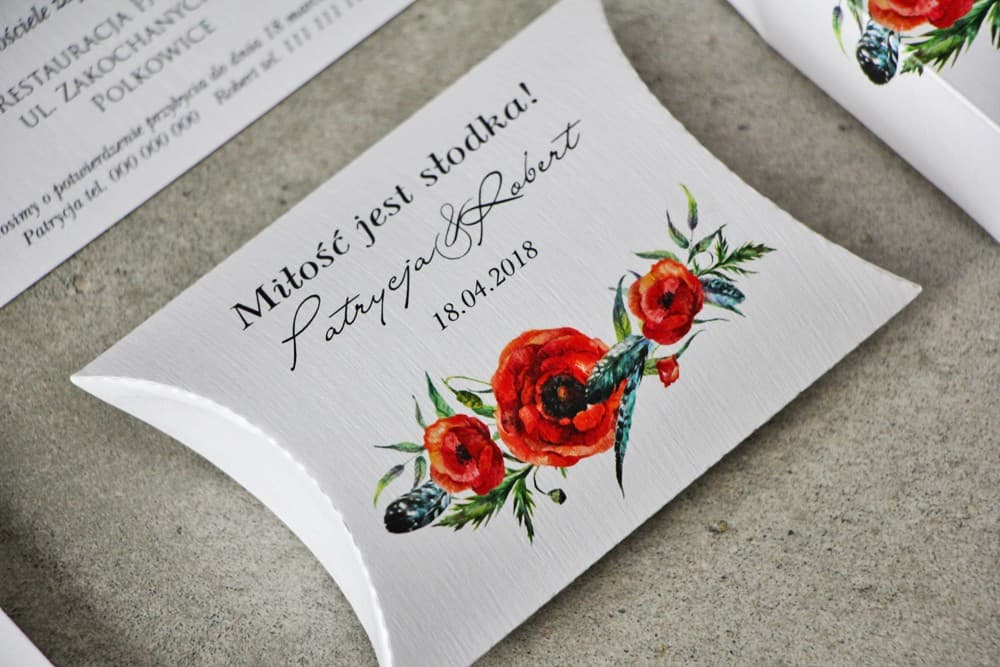 ościele
RESTAURACJA
UL. ZAKOCHANYCH
POLKOWICE
osimy o potwierdzenie przybycia do dnia 18 marca
Patrycja tel. 000 000 000 Robert tel. 111 111
Miłość jest słodka!
Patrycja & Robert
18.04.2018